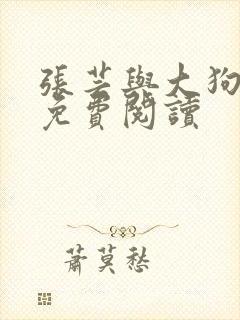 張芸與大狗
免費閱讀
蕭莫愁